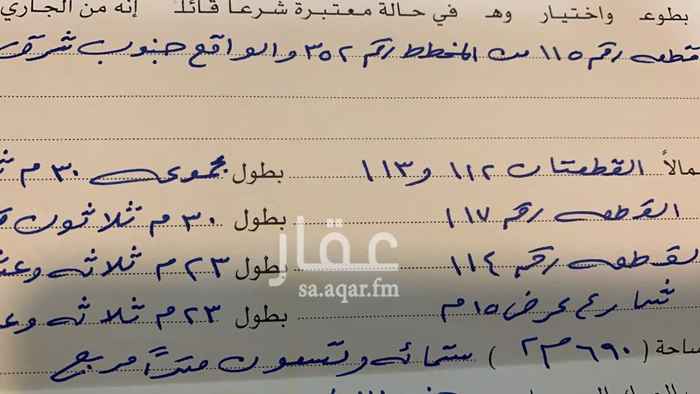 بطوع واختيار وهـ في حالة معتبرة شرعاً قائلـ إنه من الجاري
قطعه رقم ١١٥ من المخطط رقم ٣٥٢ والواقع جنوب شرق
مالاً القطعتان ١١٢ و ١١٣ بطول ٣٠ م
القطعه رقم ١١٧ بطول ٣٠ م ثلاثون
القطعه رقم ١١٤ بطول ٢٣ م ثلاثه وعشـ
شارع عرض ١٥ م بطول ٢٣ م ثلاثه وعـ
ساحة ( ٦٩٠ م٢ ) ستمائه وتسعون متراً مربع
عقار
sa.aqar.fm